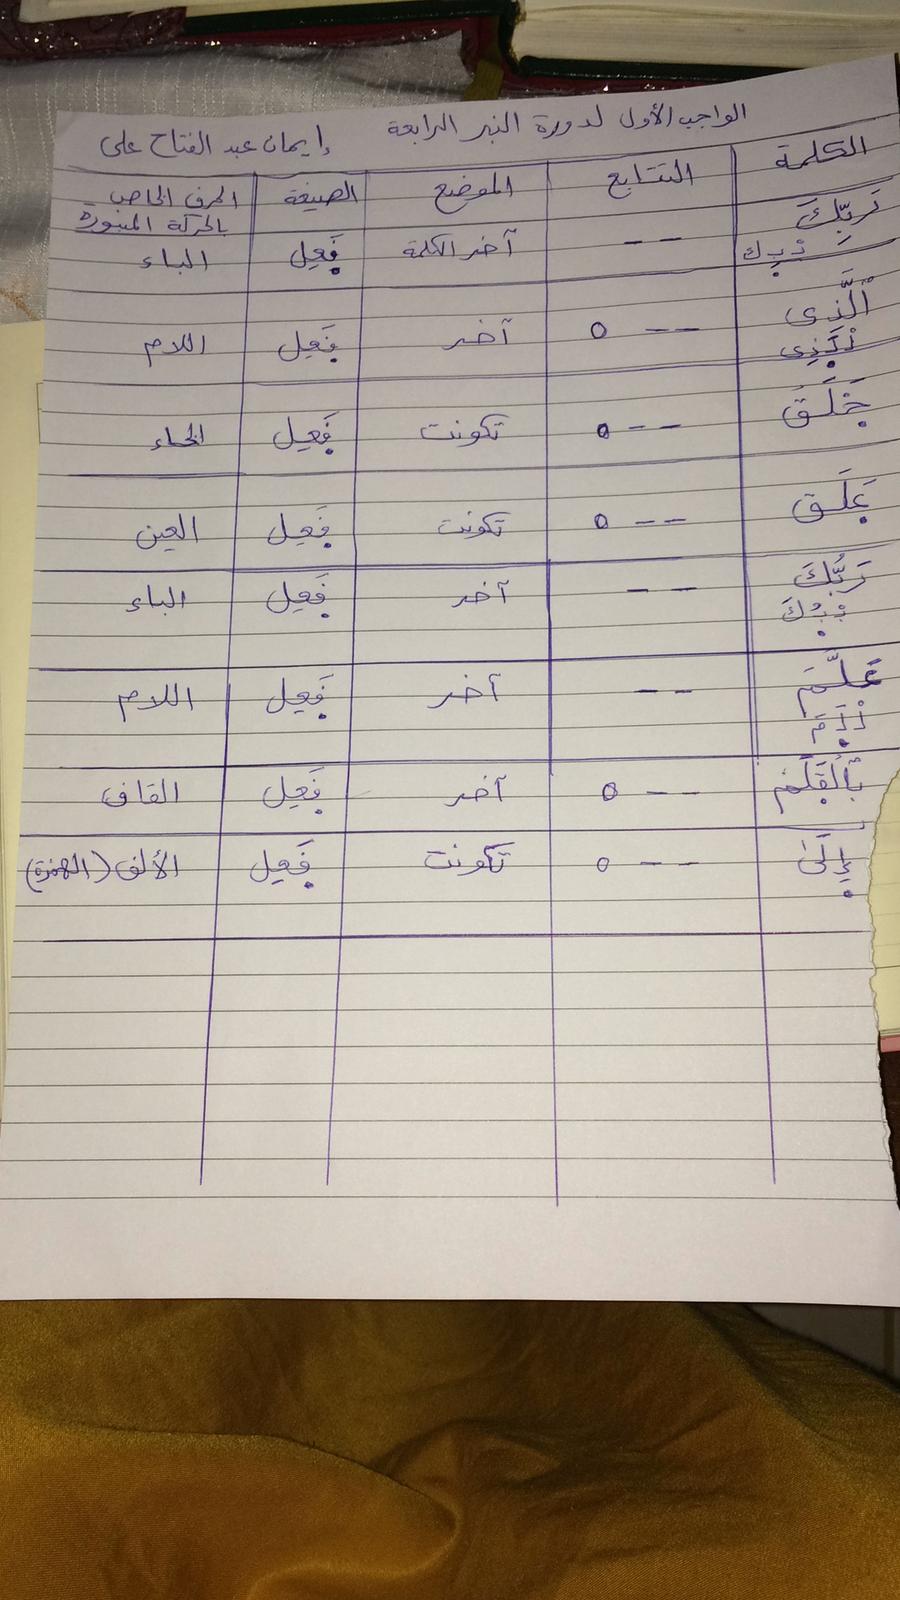 الواجب الأول لدورة النبر الرابعة إيمان عبد الفتاح على
الكلمة التتابع الموضع الصيغة الحرف الخاص بالحركة المنبورة
رَبِّكَ -- آخر الكلمة فَعِل الباء
ٱلَّذِى -- o آخر فَعِل اللام
خَلَقَ -- o تكونت فَعِل الخاء
عَلَق -- o تكونت فَعِل العين
رَبُّكَ -- آخر فَعِل الباء
عَلَّمَ -- آخر فَعِل اللام
بِٱلْقَلَمِ -- o آخر فَعِل القاف
إِلَىٰ -- o تكونت فَعِل الألف (الهمزة)